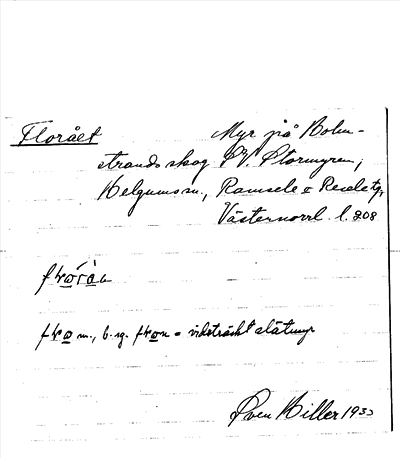 Florået
Myr på Holm-
strands skog SV. Stormyren,
Helgums sn., Ramsele o Resele tg,
Västernorrl. l. 208
m., b. sg. = vidsträckt slåtmyr
Sven Hiller 1933